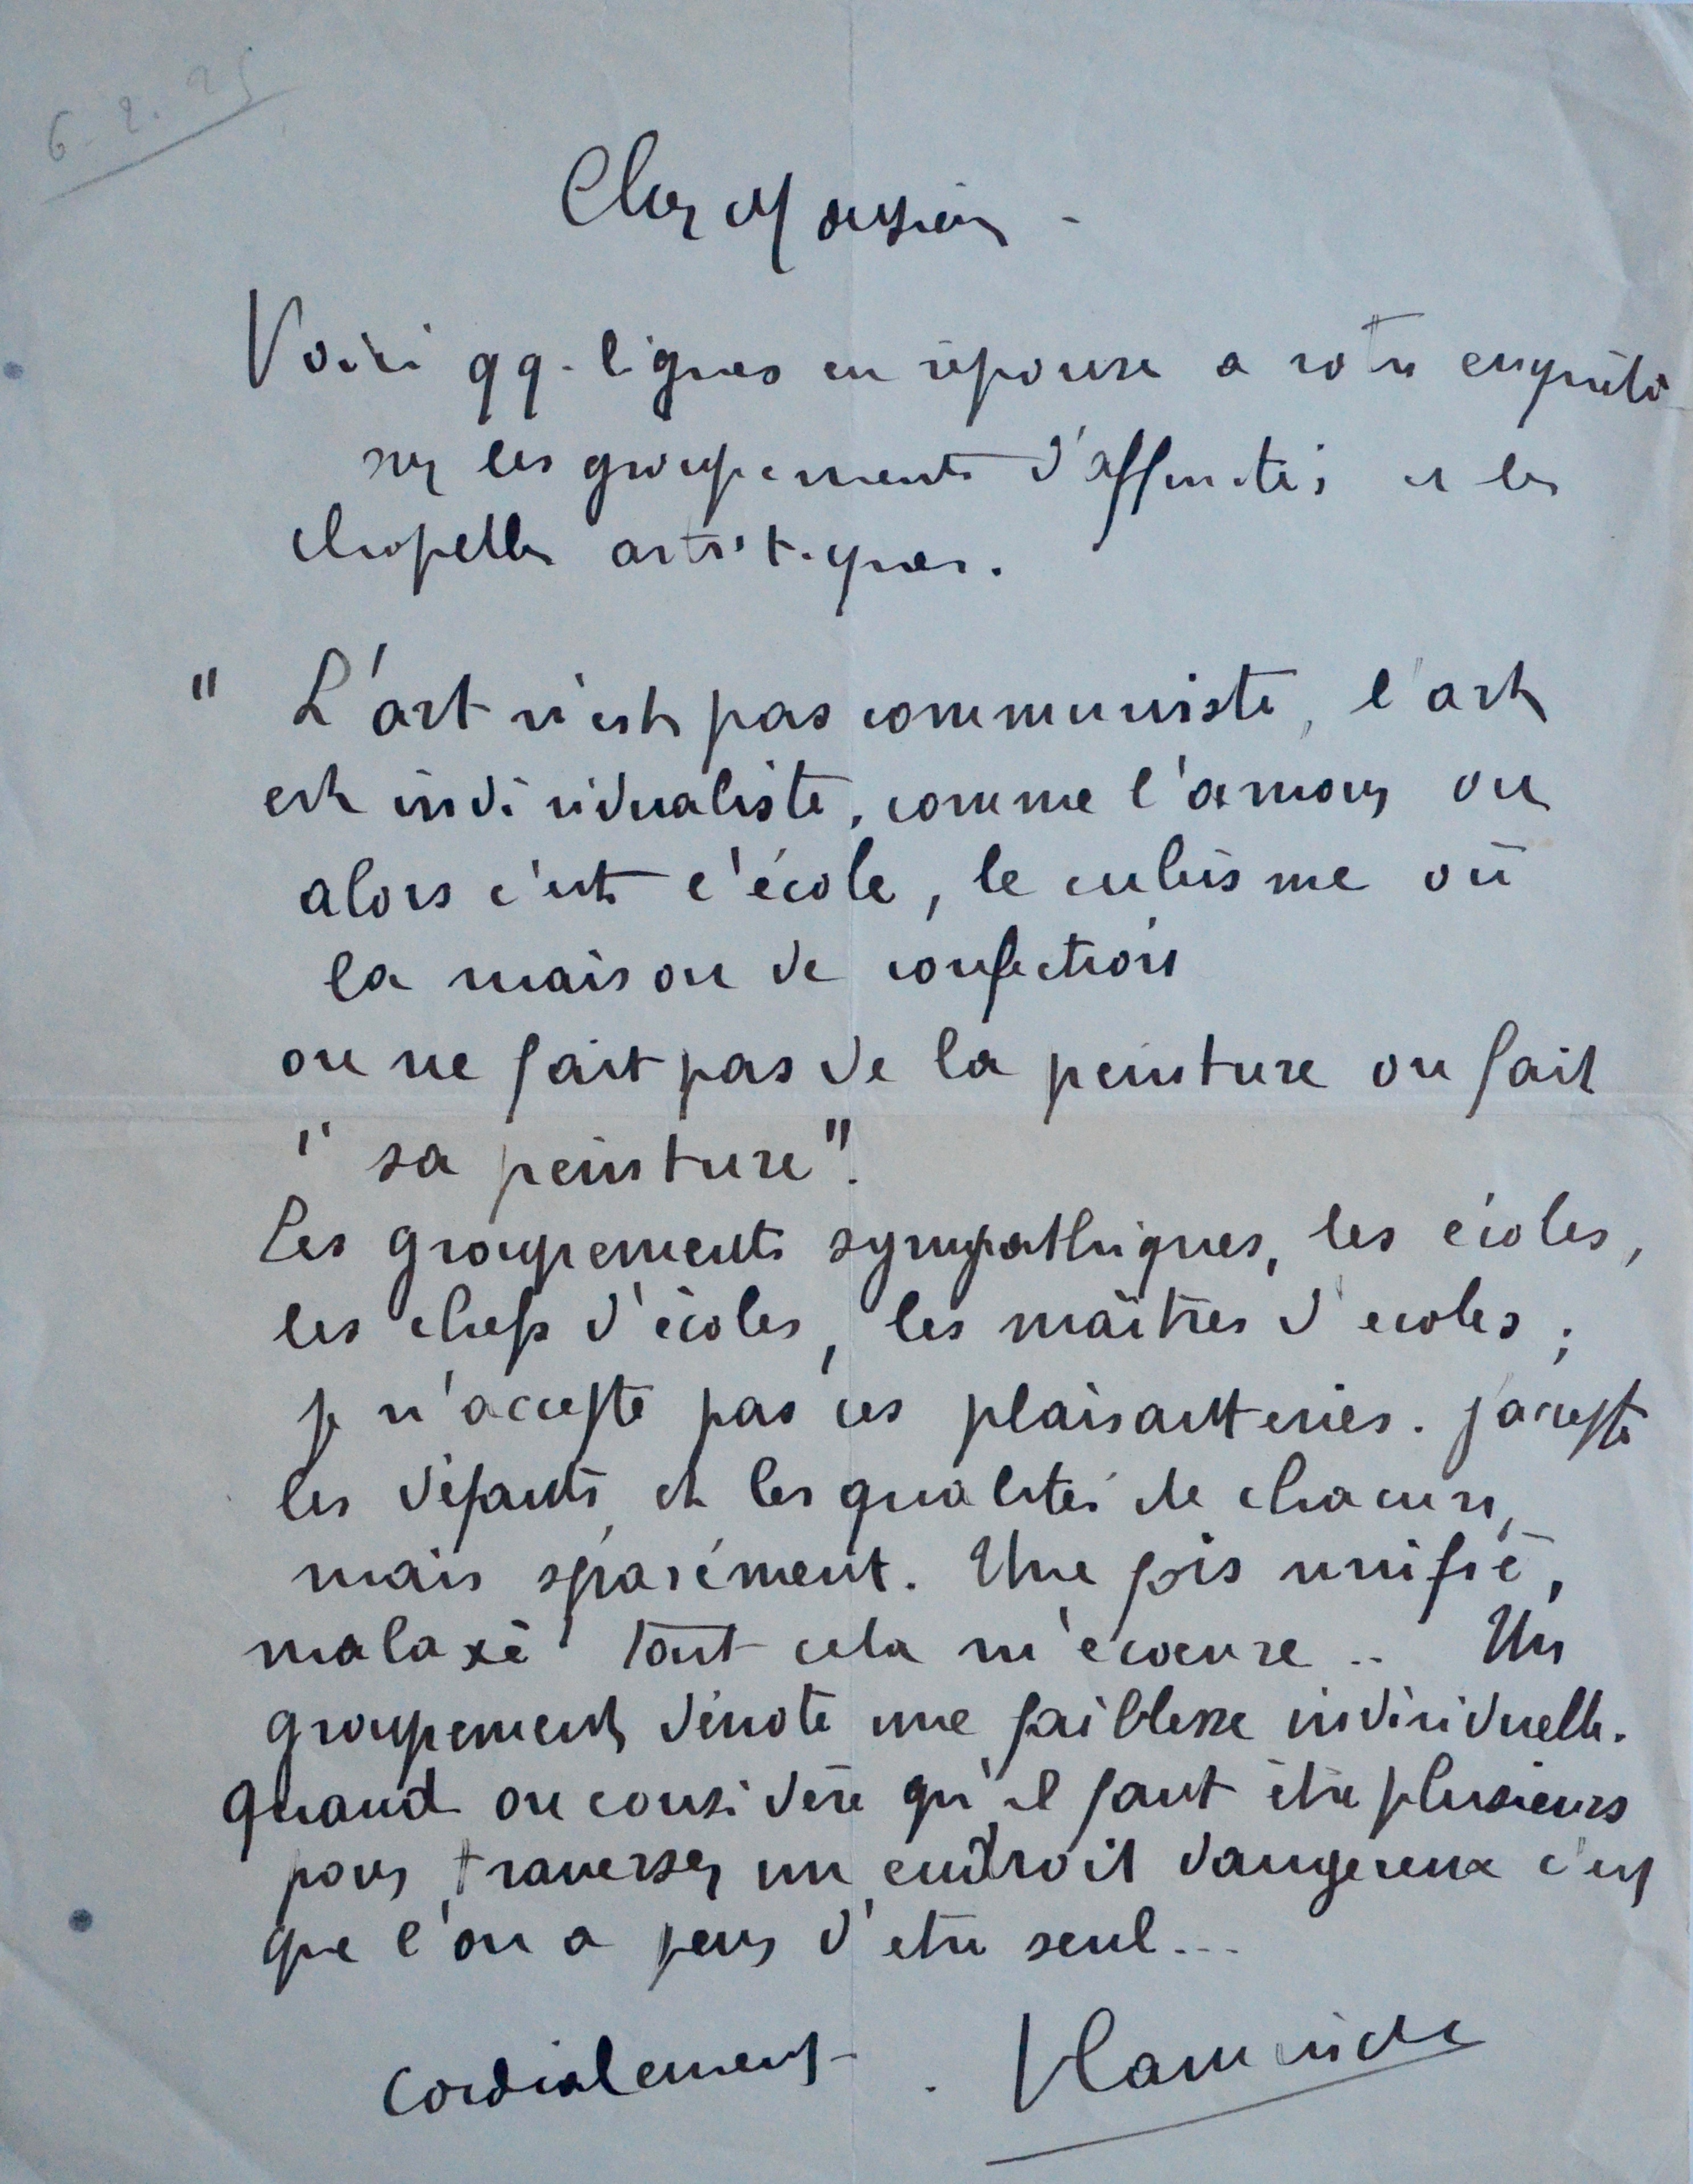 6-2.25
Cher Monsieur -
Voici qq. lignes en réponse a votre enquête
sur les groupements d'affinités et les
chapelles artistiques.
" L'art n'est pas communiste, l'art
est individualiste, comme l'amour ou
alors c'est l'école, le cubisme où
la maison de confection
on ne fait pas de la peinture on fait
" sa peinture".
Les groupements sympathiques, les écoles,
les chefs d'écoles, les maîtres d'ecoles ;
je n'accepte pas ces plaisantteries. j'accepte
les défauts et les qualités de chacun,
mais séparément. Une fois unifié,
malaxé tout cela m'écoeure .. Un
groupement dénote une faiblesse individuelle.
Quand on considère qu'il faut être plusieurs
pour traverser un endroit dangereux c'est
que l'on a peur d'etre seul...
Cordialement . Vlaminck